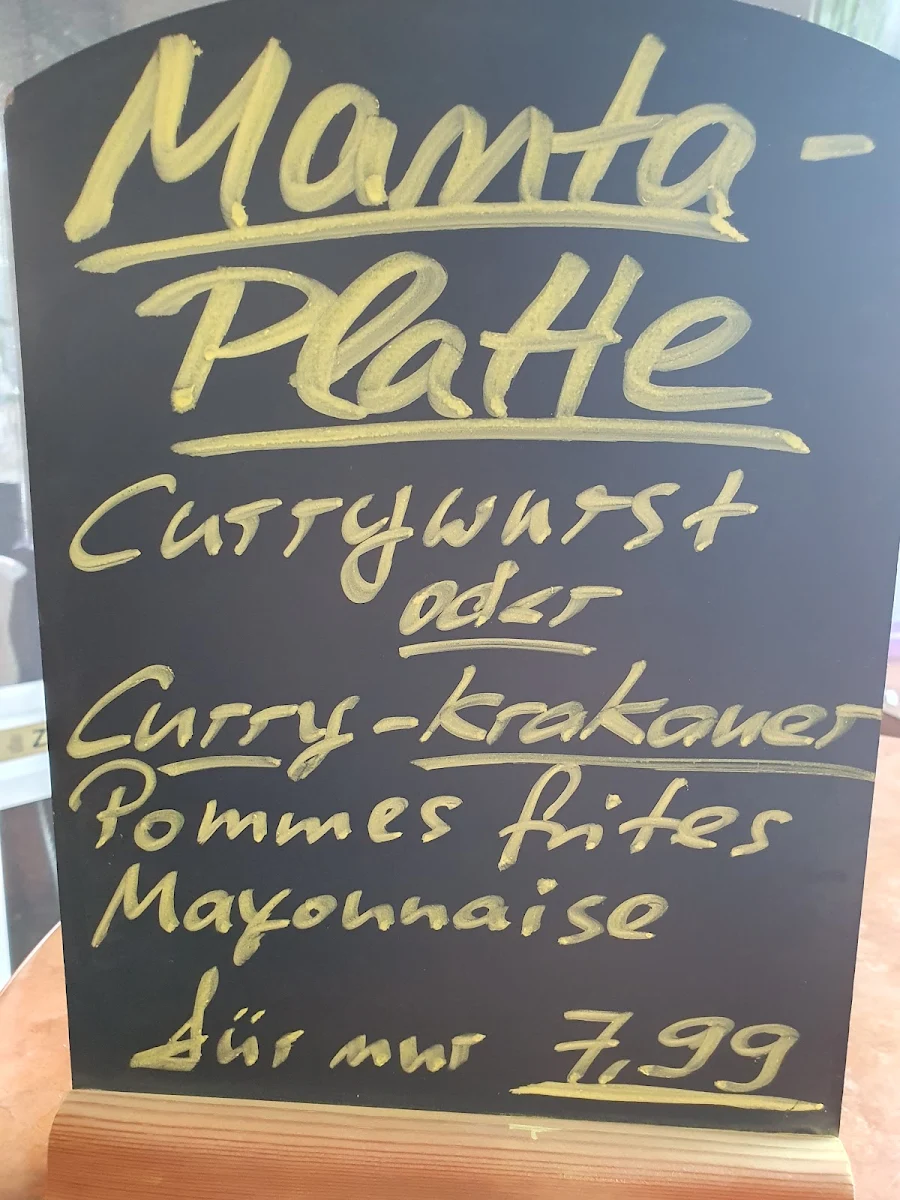 Manta-
Platte
Currywurst
oder
Curry-Krakauer
Pommes frites
Mayonnaise
für nur 7,99